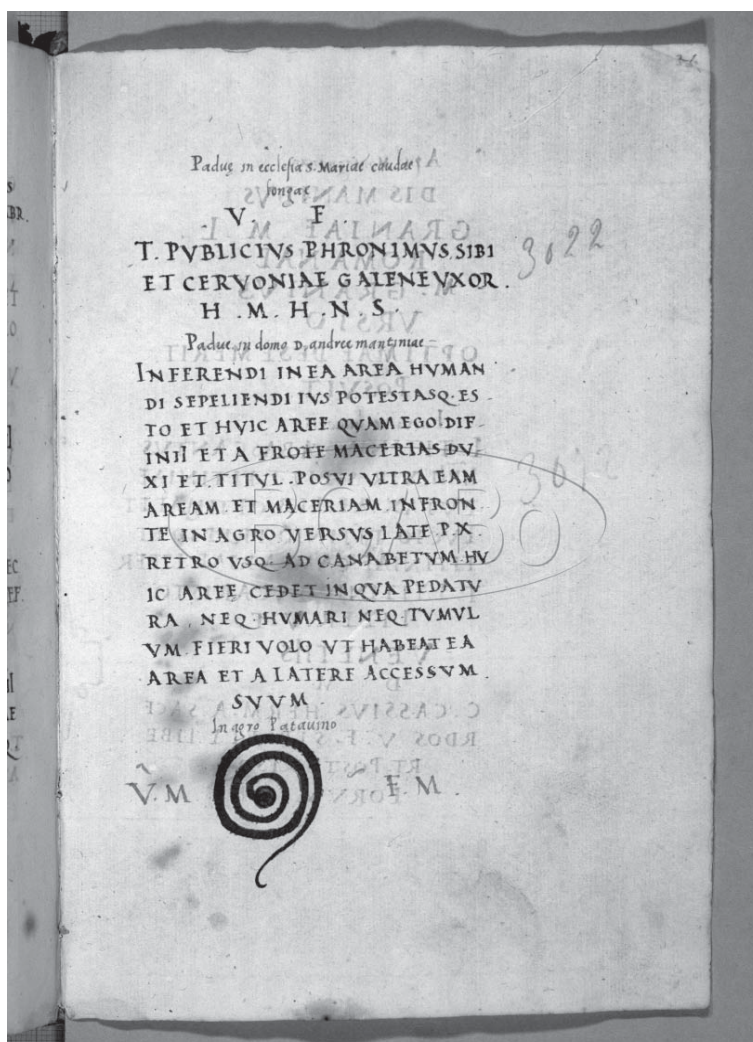 Padue in ecclesia S. Mariae caudae
longae
V F.
T. PVBLICIVS PHRONIMVS. SIBI
ET CERVONIAE GALENE VXOR.
H . M . H . N . S .
Padue in domo D. andree mantiniae
INFERENDI IN EA AREA HVMAN
DI SEPELIENDI IVS POTESTASQ. ES
TO ET HVIC AREE QVAM EGO DIF
INII ET A FROTE MACERIAS DV.
XI ET. TITVL. POSVI VLTRA EAM
AREAM. ET MACERIAM IN FRON
TE IN AGRO VERSVS LATE P. X.
RETRO VSQ. AD CANABETVM. HV
IC AREE CEDET IN QVA PEDATV
RA, NEQ. HVMARI NEQ. TVMVL
VM. FIERI VOLO VT HABEAT EA
AREA ET A LATERE ACCESSVM.
SVVM.
In agro Patauino
V. M F M .
3022
301